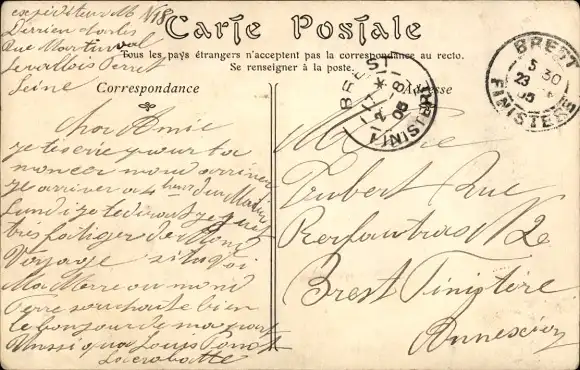 expéditeur Mr N18
Derrien Louis
Rue Martinval
Levallois Perret
Seine
Carte Postale
Tous les pays étrangers n'acceptent pas la correspondance au recto.
Se renseigner à la poste.
Correspondance
Adresse
BREST
5 30
23
05
FINISTERE
BREST
05
FINISTERE
Cher Amie
je tecrie pour ta
noncer mond arriver
je arriver a 4 heur du Matin
Lundi je te dirait je suit
tres fatiger de Mont
Voyage si tu voi
Ma Merre ou mond
Perre souhaute bien
le bonjour de ma part
Aussi qua Louis
Lacrobatte
Rue
N 2
Brest Finistère